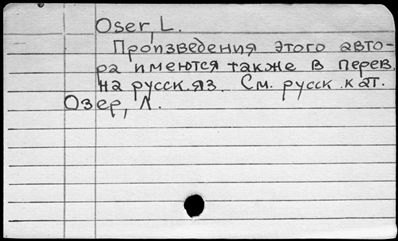 Oser, L.
Произведения этого авто-
ра имеются также в перев.
на русск. яз. См. русск. кат.
Озер, Л.